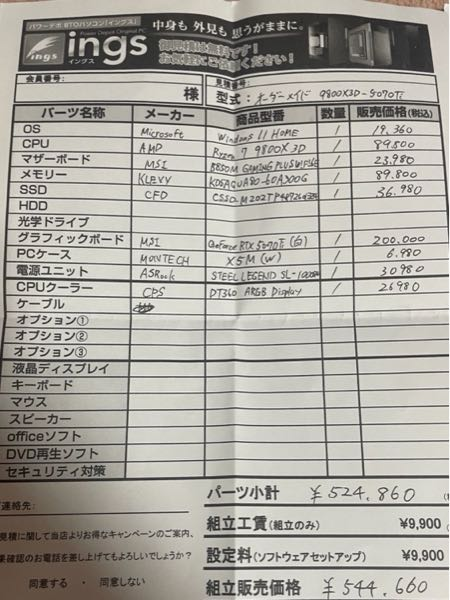 パワーデポ BTOパソコン「イングス」
Power Depot Original PC
ings
ings
イングス
中身も 外見も 思うがままに。
御見積は無料です!
お気軽にご依頼ください!
会員番号: 見積番号:
様 型式: オーダーメイド 9800X3D-5070Ti
パーツ名称 メーカー 商品型番 数量 販売価格(税込)
OS Microsoft Windows 11 HOME 1 19.360
CPU AMD Ryzen 7 9800X3D 1 89.500
マザーボード MSI B850M GAMING PLUS WIFI6E 1 23.980
メモリー KLEVV 1 89.800
SSD CFD 1 36.980
HDD
光学ドライブ
グラフィックボード MSI GeForce RTX 5070Ti (白) 1 200.000
PCケース MONTECH X5M (W) 1 6.980
電源ユニット ASRock STEEL LEGEND 1 30980
CPUクーラー CPS DT360 ARGB Display 1 26980
ケーブル
オプション①
オプション②
オプション③
液晶ディスプレイ
キーボード
マウス
スピーカー
officeソフト
DVD再生ソフト
セキュリティ対策
連絡先: パーツ小計 ¥524.860
見積に関して当店よりお得なキャンペーンのご案内、 組立工賃(組立のみ) ¥9,900
確認のお電話を差し上げてもよろしいでしょうか? 設定料(ソフトウェアセットアップ) ¥9,900
同意する ・ 同意しない 組立販売価格 ¥544.660